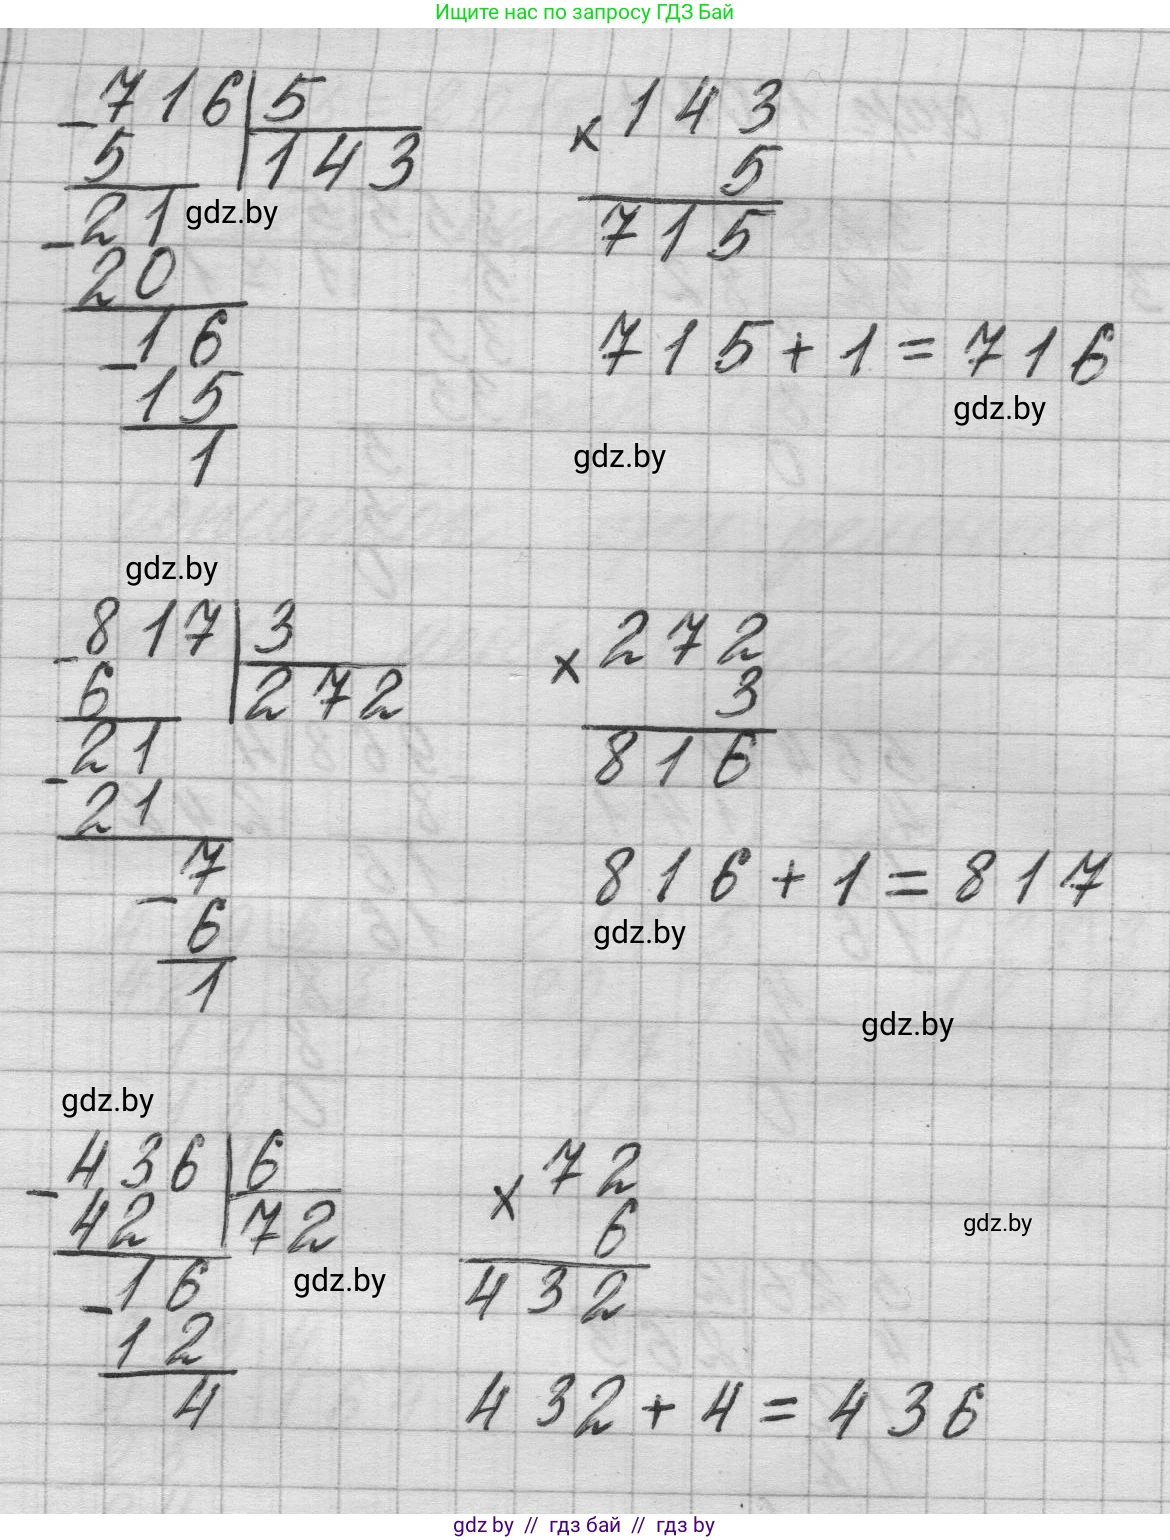 Ищите нас по запросу ГДЗ Бай
716 5 143
- 5 143 × 5
21 gdz.by 715
- 20
16 715 + 1 = 716
- 15 gdz.by
1 gdz.by
gdz.by
817 3 272
- 6 272 × 3
21 816
- 21
7 816 + 1 = 817
- 6 gdz.by
1
gdz.by
gdz.by
436 6 72
- 42 72 × 6 gdz.by
16 gdz.by 432
- 12
4 432 + 4 = 436
gdz.by // гдз бай // гдз by